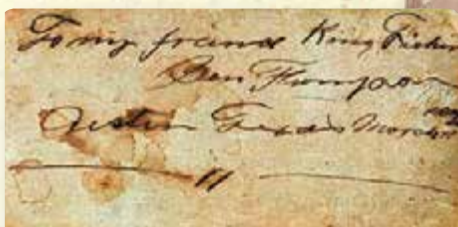 To my friend King Fisher
Ben Thompson
Austin Texas March
11